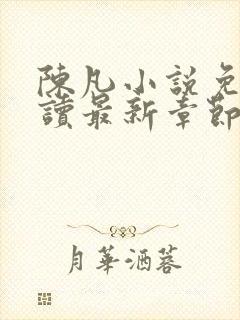 陳凡小說免
讀最新章節
月華酒蓉